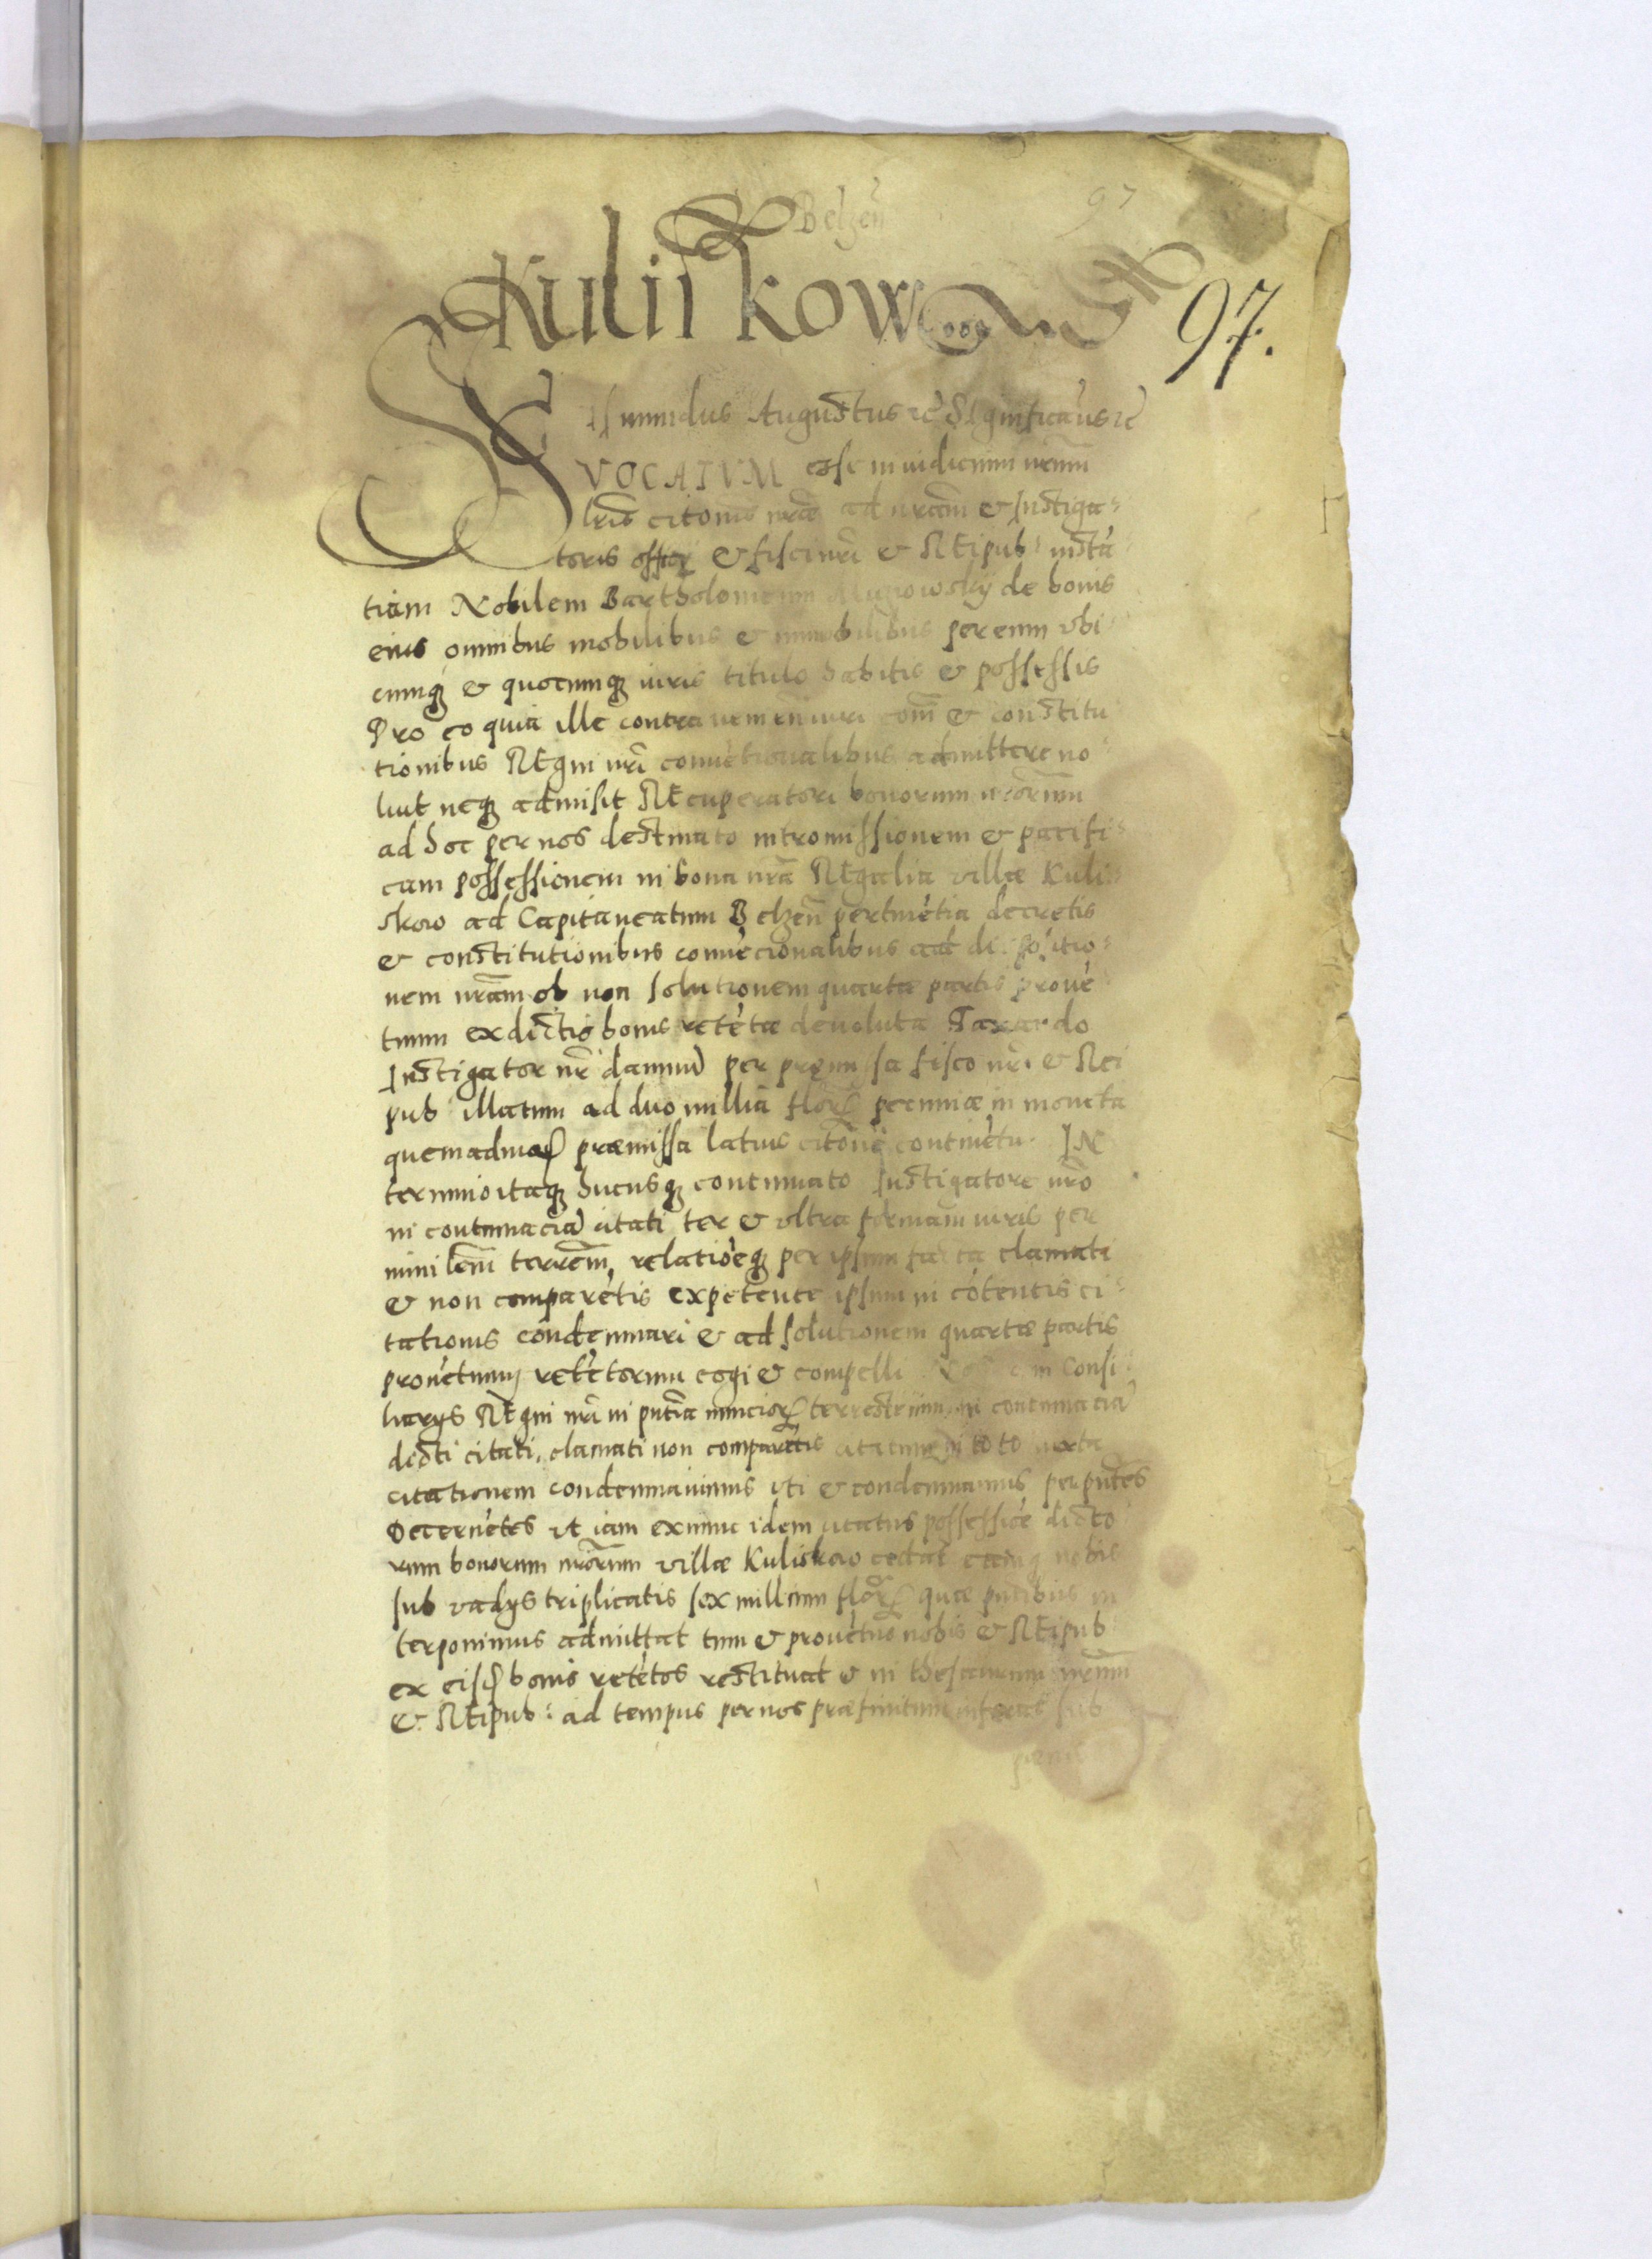 Belzen̄
97
Kuliskow
97.
Sigismundus Augustus rc̄ Significam̄us rc̄
VOCATUM esse in iudicium nr̄um
lr̄is citōnis nr̄æ ad nr̄am & Instiga:
toris officÿ & fisci nr̄i & REipub: instā
tiam Nobilem Bartholomeum de bonis
eius omnibus mobilibus & immobilibus per eum vbi
cumqȝ & quocumqȝ iuris titulo habitis & possessis
Pro eo quia ille contraueniendo iuri com̄ & constitu
tionibus REgni nr̄i conuētionalibus admittere no
luit neqȝ admisit REcuperatori bonorum nr̄orum
ad hoc per nos destinato intromissionem & pacifi
cam possessionem in bona nr̄a REgalia villæ Kuli
skow ad Capitaneatum Belzen̄ pertinētia decretis
& constitutionibus conuēcionalibus ad dispositio:
nem nr̄am ob non solutionem quartæ partis prouē
tuum ex dictis bonis retētæ deuoluta Taxando
Instigator nr̄ damnū per præmissa fisco nr̄o & Rei
pub illatum ad duo millia florȝ pecuniæ in moneta
quemadmoɖ præmissa latius citōne continētur IN
termino itaqȝ hucusqȝ continuato Instigatore nr̄o
in contumaciā citati ter & vltra formam iuris per
minilem̄ terrem̄, relatiōeqȝ per ipsum facta clamati
& non comparētis expetente ipsum in cōtentis ci:
tationis condemnari & ad solutionem quartæ partis
prouētuum retētorum cogi & compelli in Consi:
liarÿs REgni nr̄i in pn̄tia nuncioRȝ terrestrium in contumaciā
dicti citati, clamati non comparētis citatum in toto iuxta
citationem condemnauimus vti & condemnamus per pn̄tes
Decernētes vt iam ex nunc idem citatus possessiōe dicto
rum bonorum nr̄orum villæ Kuliskow cedat eamqȝ nobis
sub vadÿs triplicatis sex millium florȝ quæ pn̄tibus in
terponimus admittat tum & prouētus nobis & REipub
ex eisɖ bonis retētos restituat & in thesaurum nr̄um
& REipub: ad tempus per nos præfinitum inferat sub